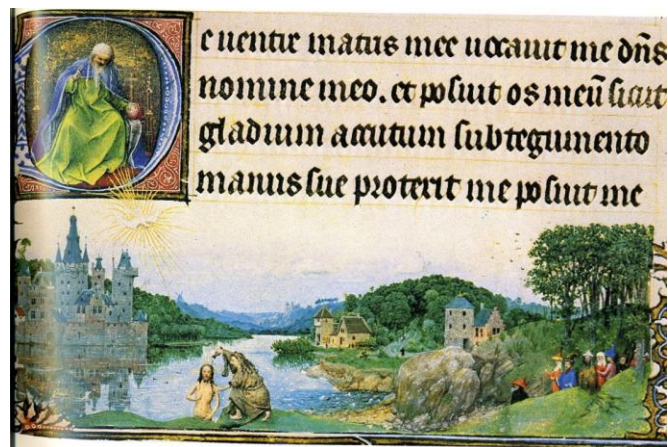 e uentre matris mee uocauit me dn̄s
nomine meo. et posuit os meū sicut
gladium accutum sub tegumento
manus sue proterit me posuit me